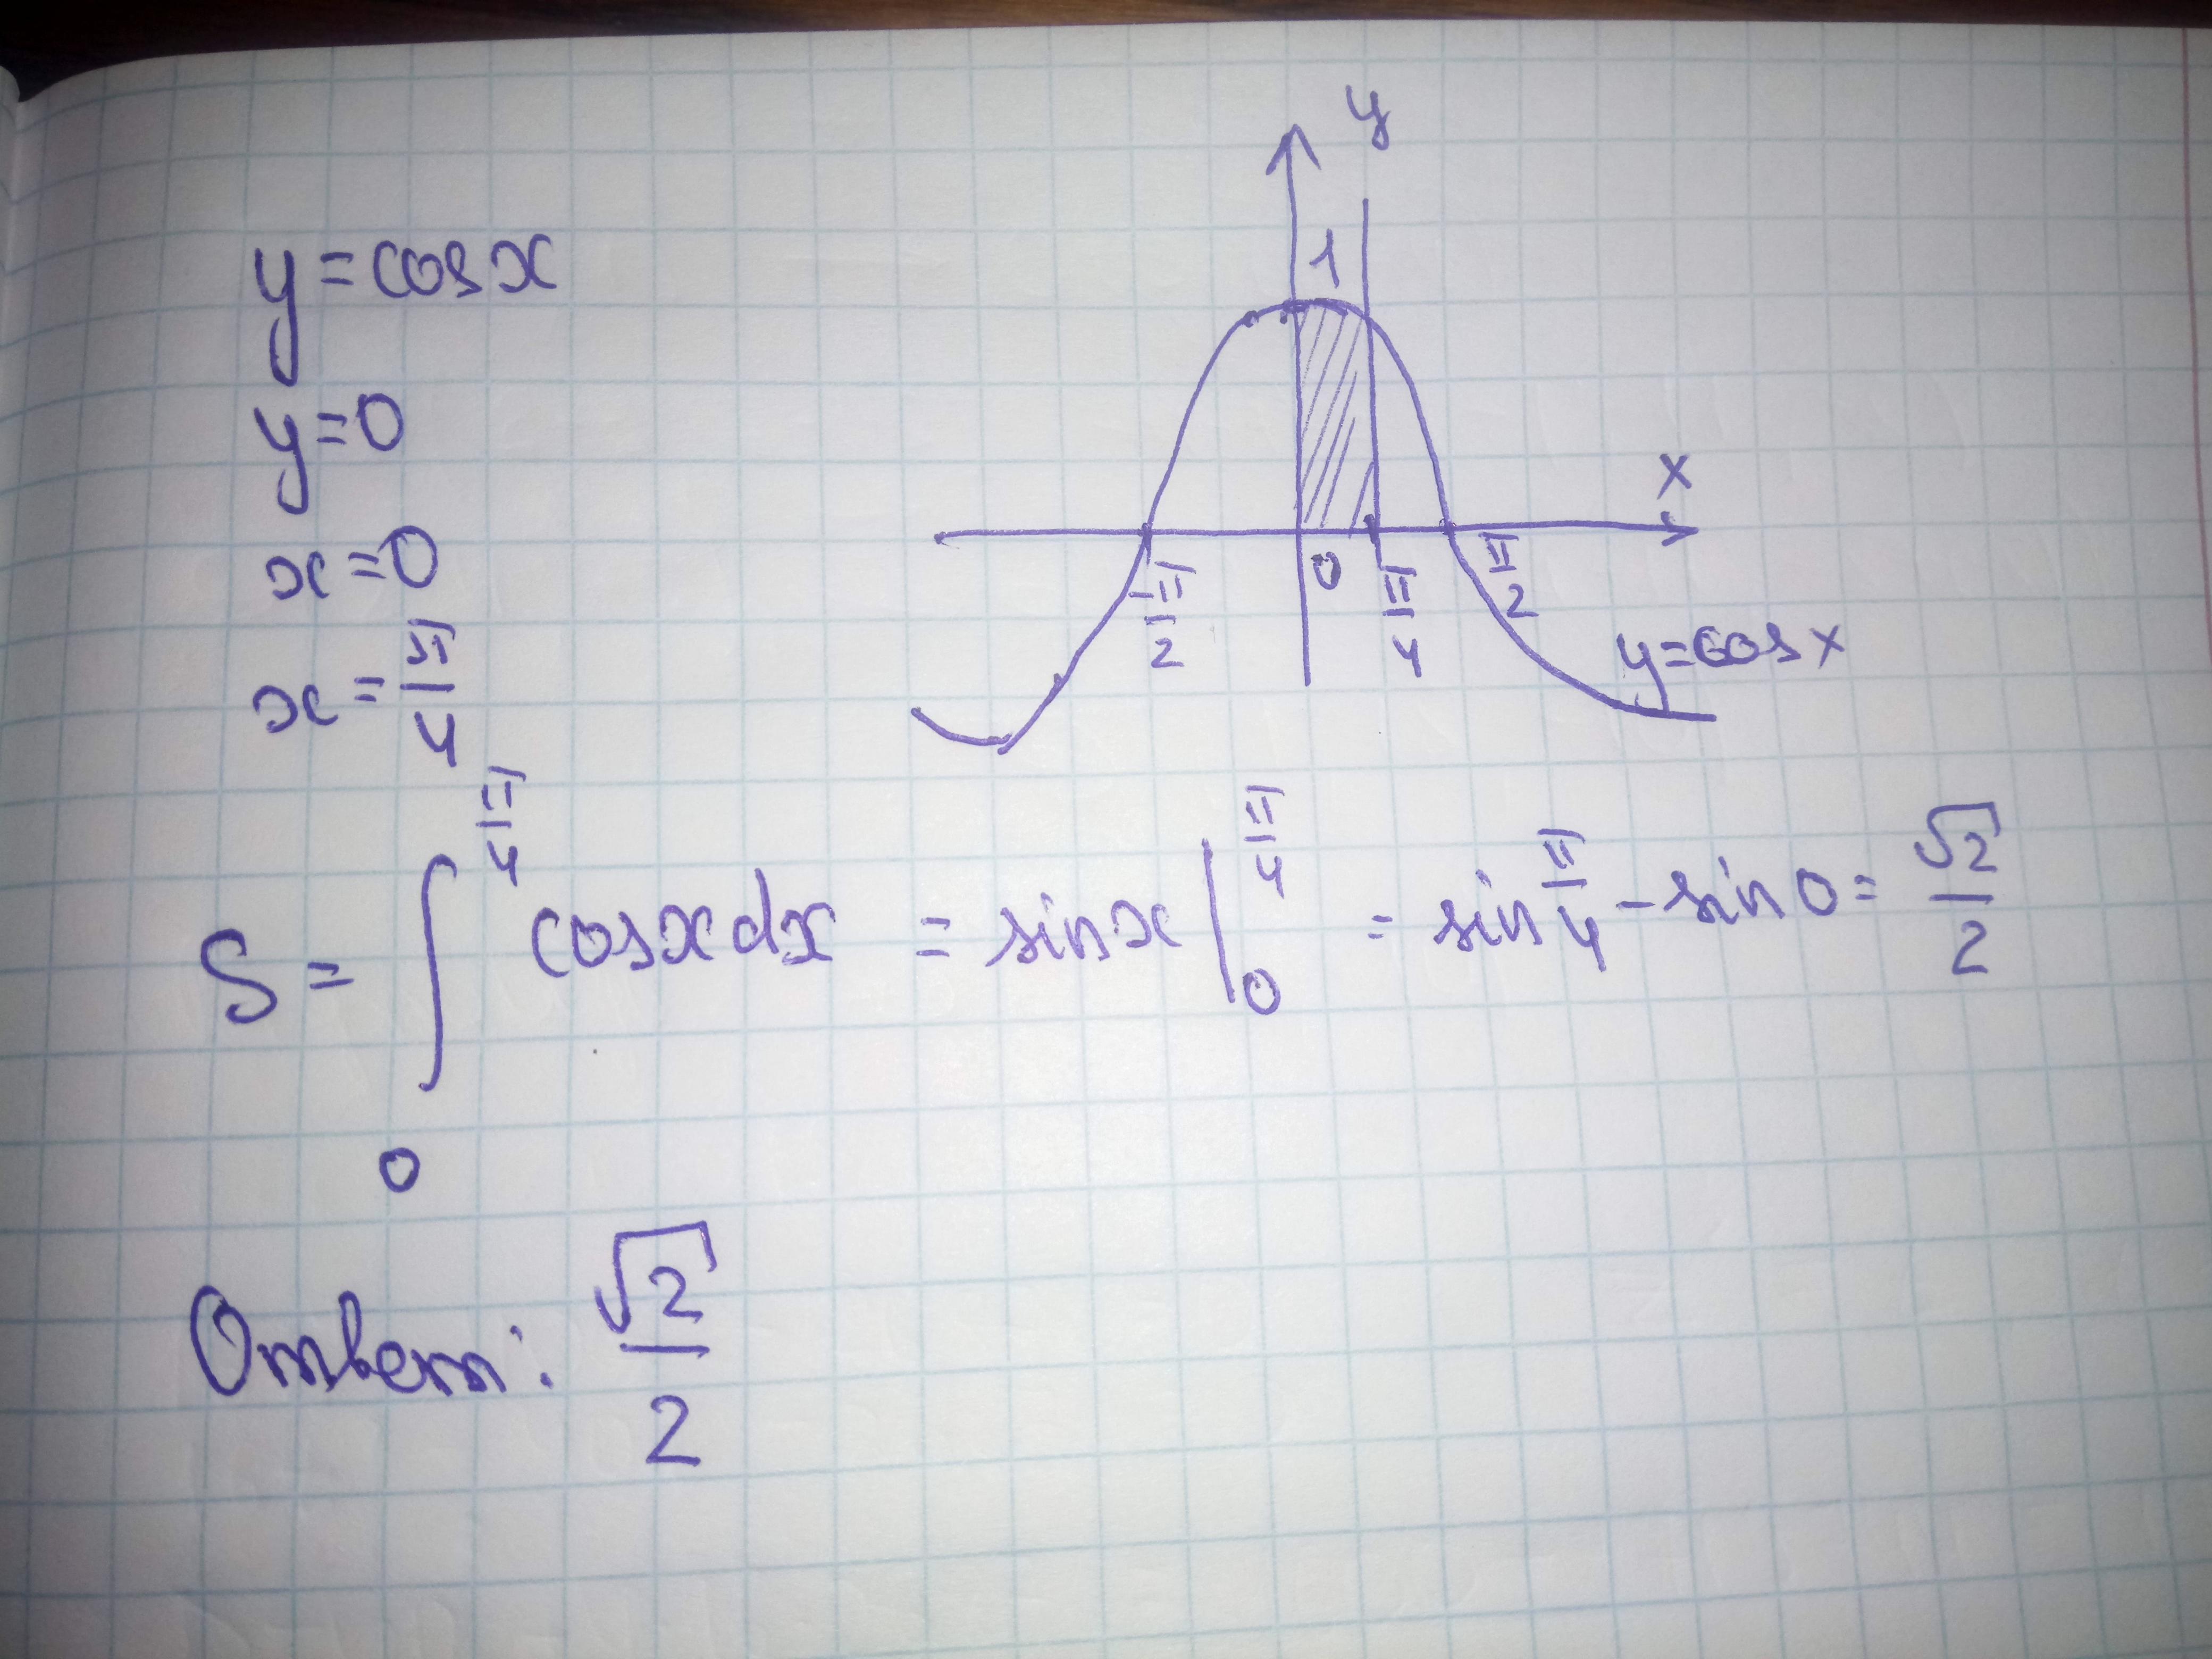 y = cos x
y = 0
x = 0
x = π/4
y
1
x
-π/2
0
π/4
π/2
y = cos x
S = ∫₀^(π/4) cos x dx = sin x |₀^(π/4) = sin π/4 - sin 0 = √2/2
Ответ: √2/2